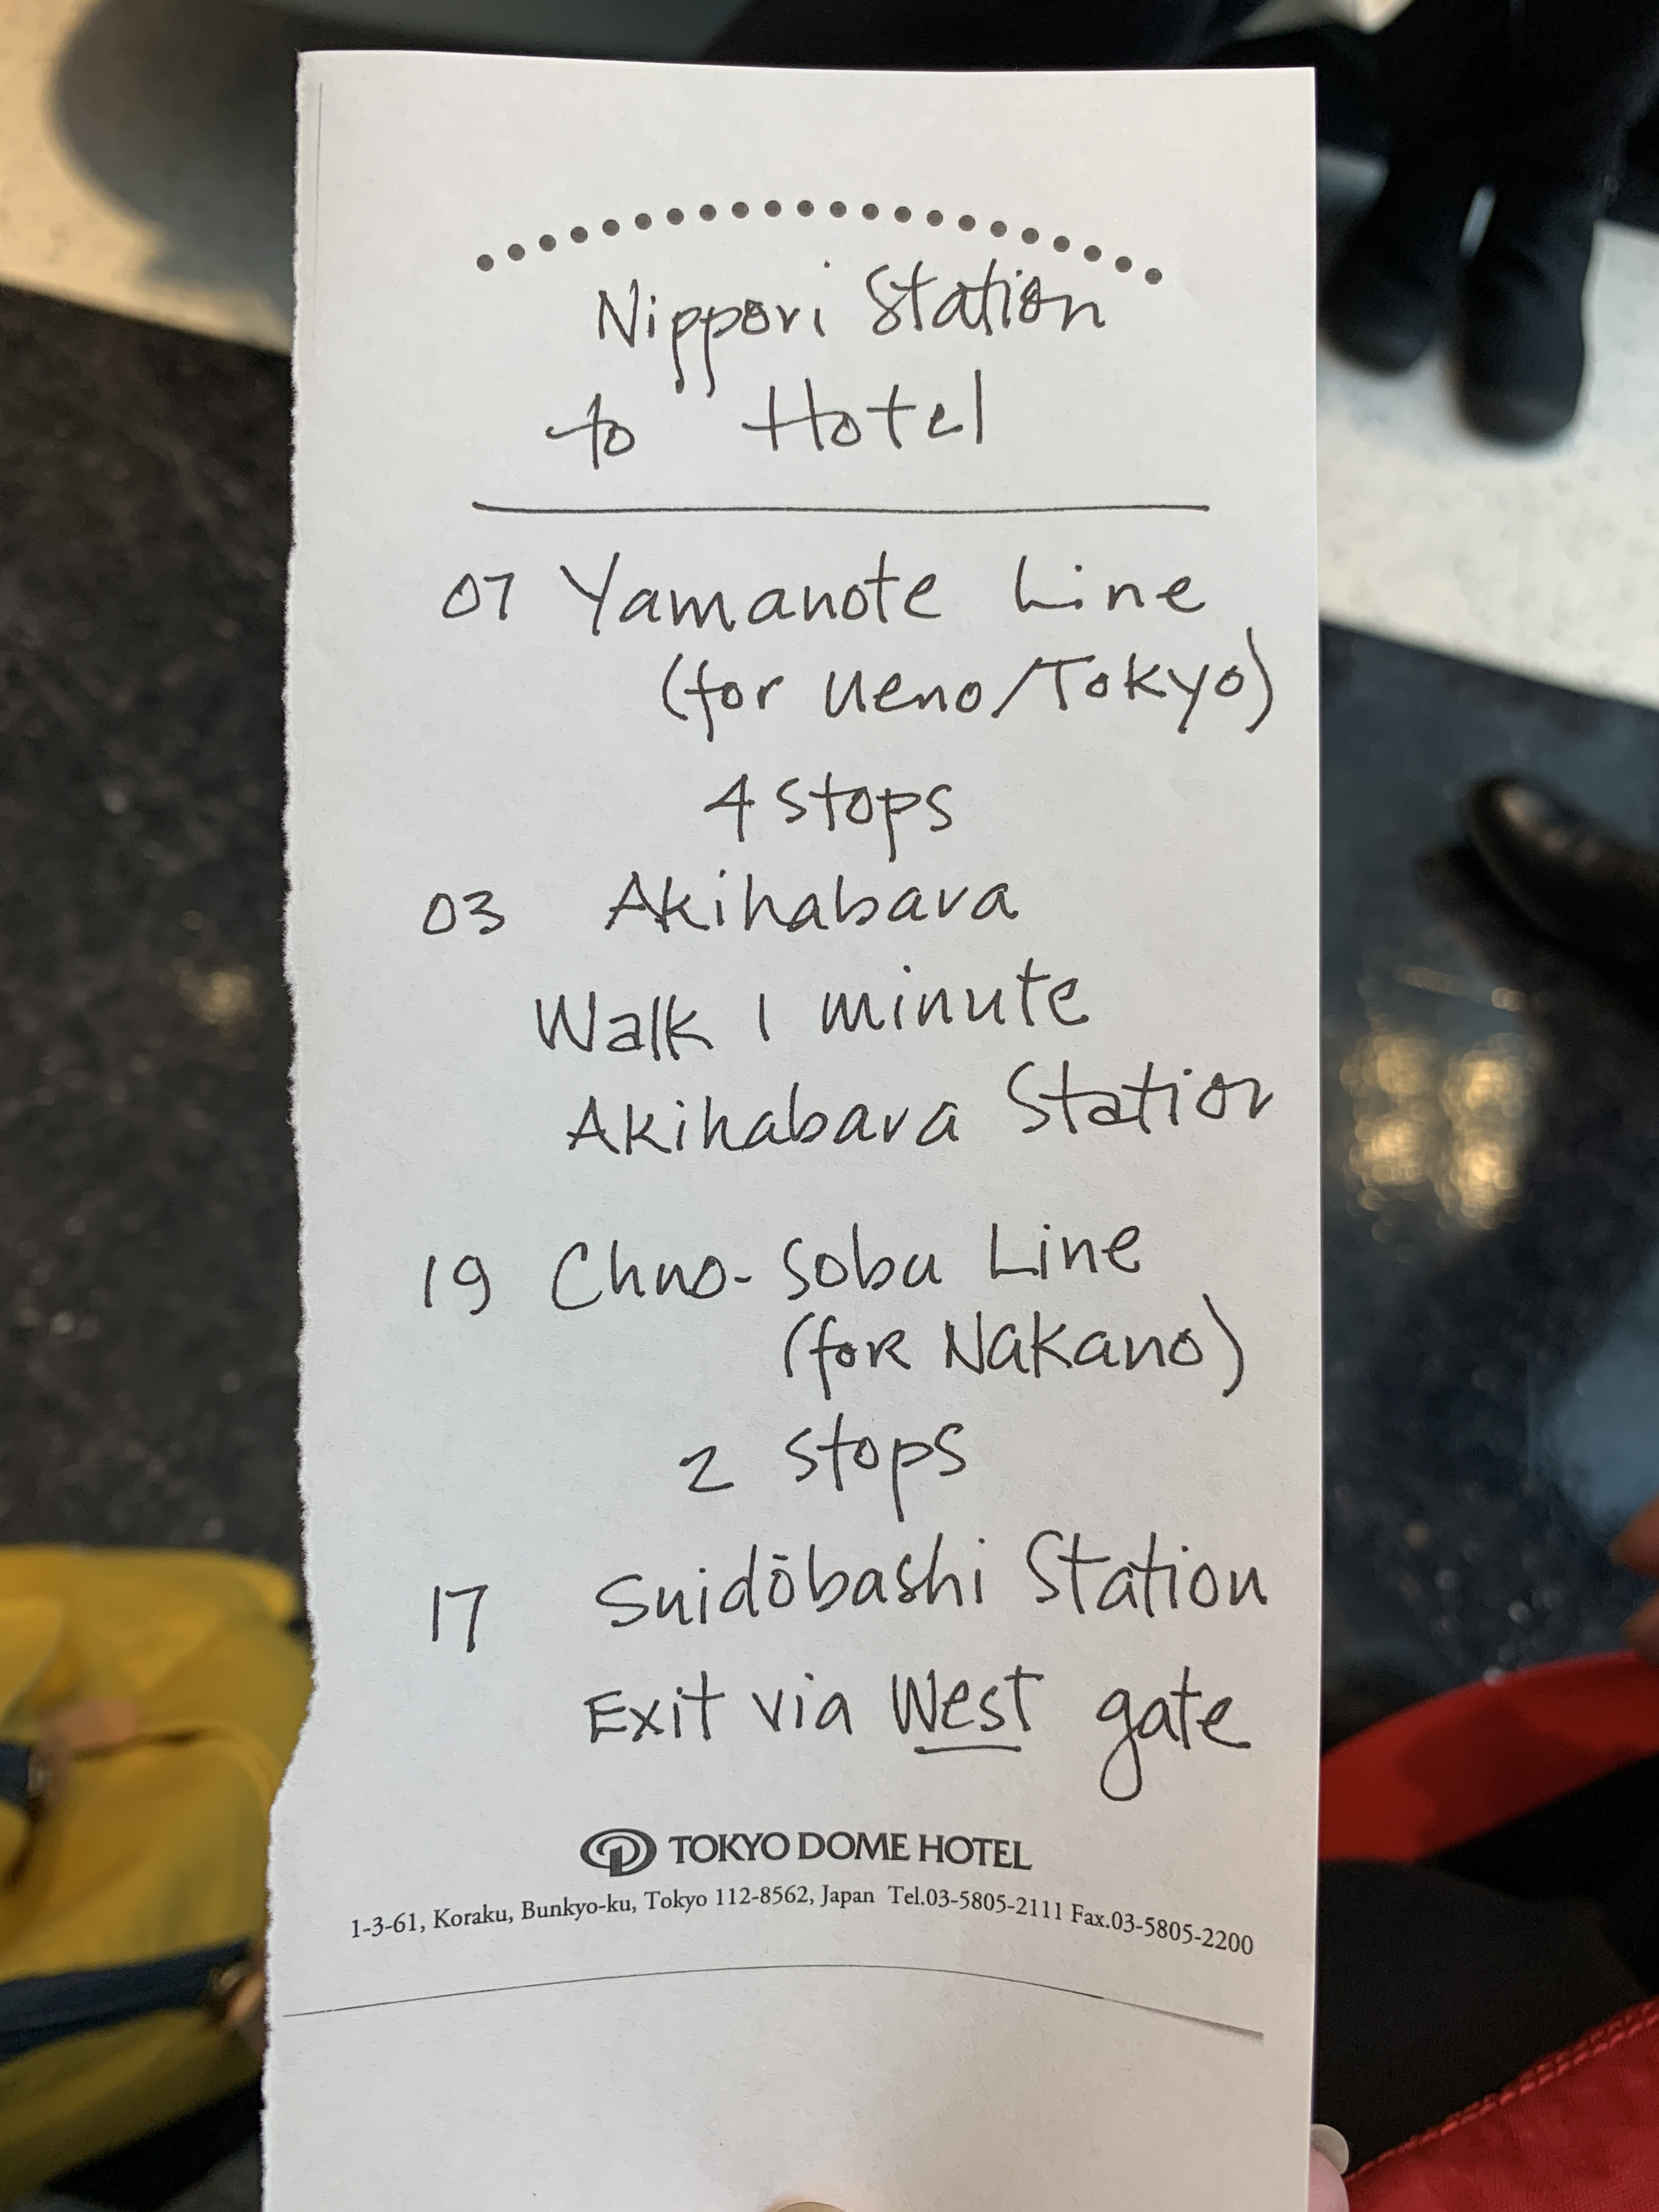 Nippori Station
to Hotel
07 Yamanote Line
(for Ueno/Tokyo)
4 stops
03 Akihabara
Walk 1 minute
Akihabara Station
19 Chuo-Sobu Line
(for Nakano)
2 stops
17 Suidōbashi Station
Exit via West gate
TOKYO DOME HOTEL
1-3-61, Koraku, Bunkyo-ku, Tokyo 112-8562, Japan Tel.03-5805-2111 Fax.03-5805-2200